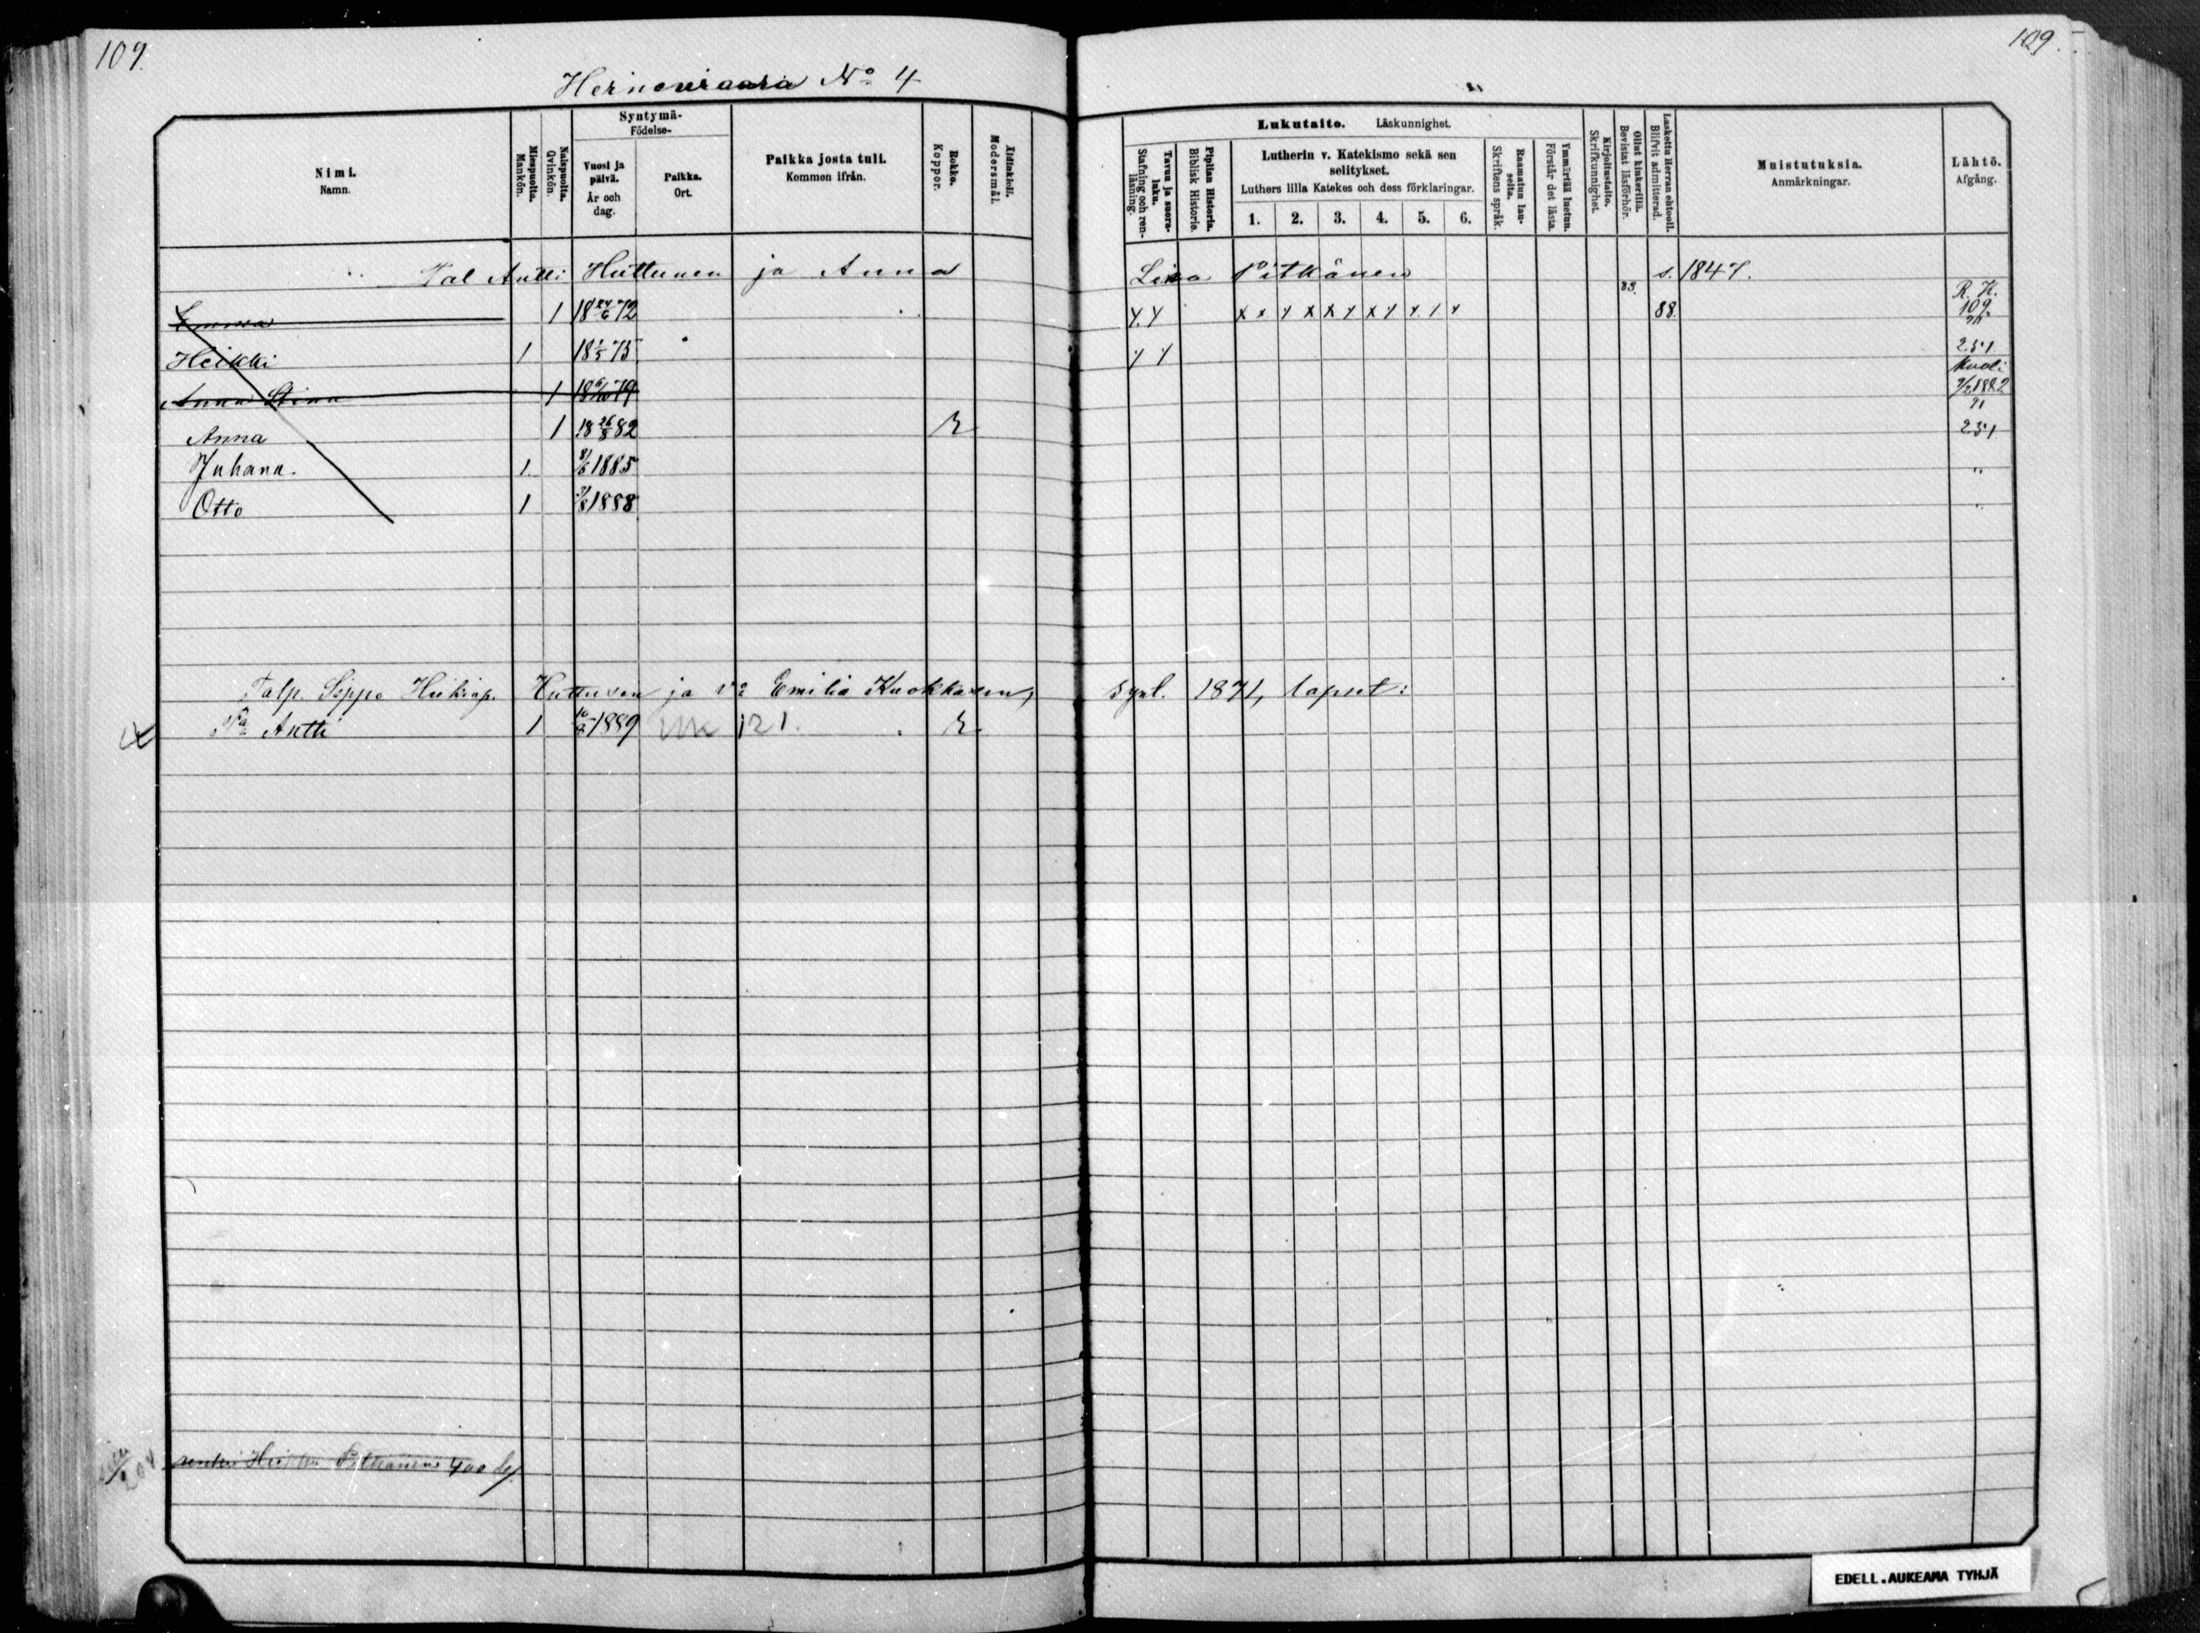 109.
109.
Hernevaara No 4
Nimi.
Namn.
Miespuolta.
Mankön.
Naispuolta.
Qvinkön.
Syntymä-
Födelse-
Vuosi ja
päivä.
År och
dag.
Paikka.
Ort.
Paikka josta tuli.
Kommen ifrån.
Rokko.
Koppor.
Äidinkieli.
Modersmål.
Lukutaito. Läskunnighet.
Tavuu ja suora-
luku.
Stafning och ren-
läsning.
Piplian Historia.
Biblisk Historie.
Lutherin v. Katekismo sekä sen
selitykset.
Luthers lilla Katekes och dess förklaringar.
1. 2. 3. 4. 5. 6.
Raamatun lau-
seita.
Skriftens språk.
Ymmärtää luetun.
Förstår det lästa.
Kirjoitustaito.
Skrifkunnighet.
Ollut kinkerillä.
Bevistat läsförhör.
Laskettu Herran ehtooll.
Blifvit admitterad.
Muistutuksia.
Anmärkningar.
Lähtö.
Afgång.
Tal Antti Huttunen ja Anna Lina Pitkänen s. 1847.
Emma 1 18 24/6 72 x x x x x x x x x x x 88. 88. R. K. 109
Heikki 1 18 1/5 75 x x 91 251
Anna Stina 1 18 6/10 79 kuoli 9/2 1882
Anna 1 18 26/8 82 r 91 251
Juhana. 1. 1885 "
Otto 1 1888 "
Talp. Sippo Heikinp. Huttusen ja vo Emilia Kuokkasen, synt. 1871, lapset:
Pa Antti 1 1889 121. r
Pitkänen 400
EDELL.AUKEAMA TYHJÄ